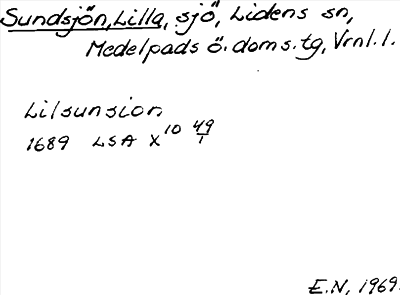 Sundsjön, Lilla, sjö, Lidens sn,
Medelpads ö. doms.tg, Vrnl. l.
Lilsunsion
1689 LSA X 10 49/1
E.N, 1969.